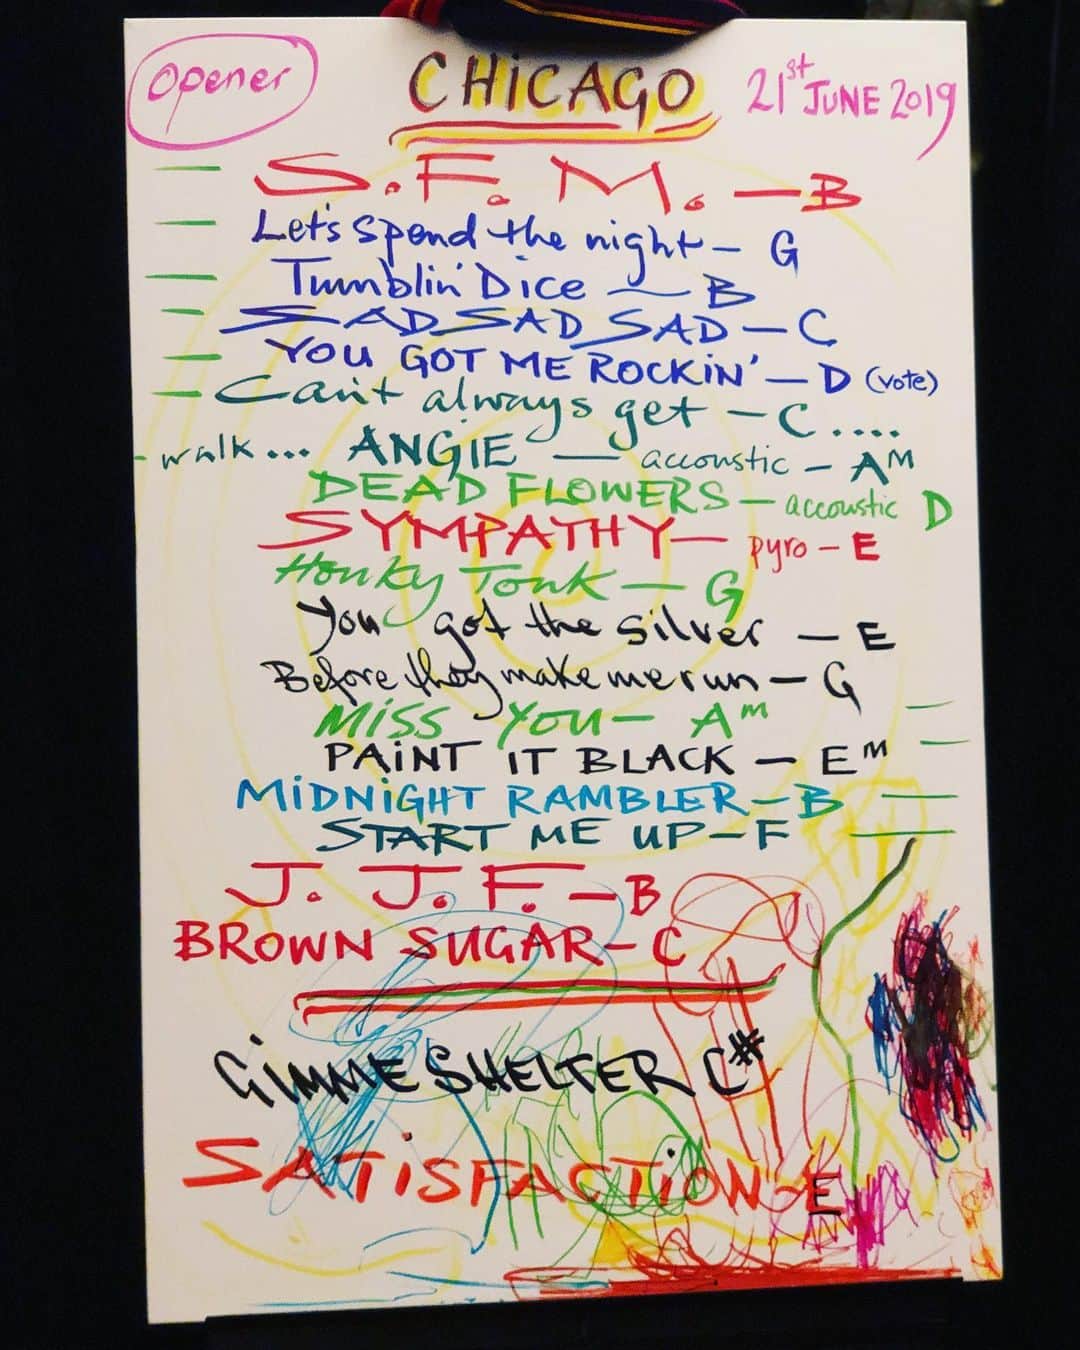 Opener CHiCAGO 21st JUNE 2019
S.F.M. — B
Let's spend the night — G
Tumblin' Dice — B
SAD SAD SAD — C
YOU GOT ME ROCKiN' — D (vote)
Can't always get — C....
- walk... ANGiE — accoustic - AM
DEAD FLOWERS — accoustic D
SYMPATHY — pyro - E
Honky Tonk — G
You got the silver — E
Before they make me run — G
MiSS YOU — AM
PAiNT IT BLACK — EM
MiDNiGHT RAMBLER — B
START ME UP — F
J. J. F. — B
BROWN SUGAR — C
GiMME SHELTER C#
SATiSFACTiON - E